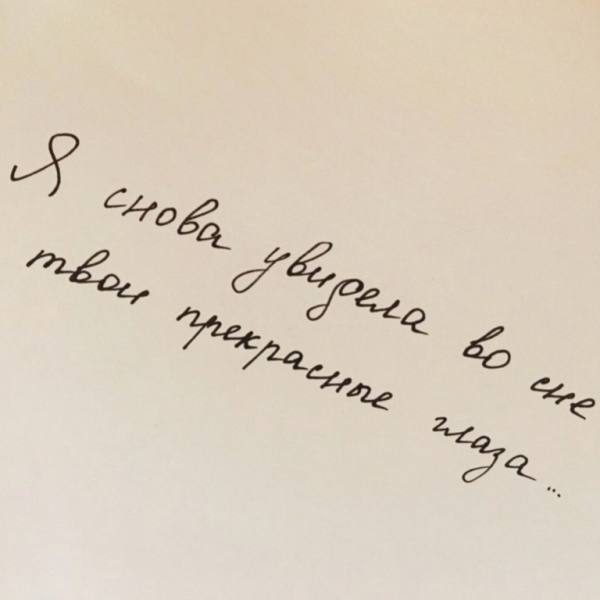 Я снова увидела во сне
твои прекрасные глаза...